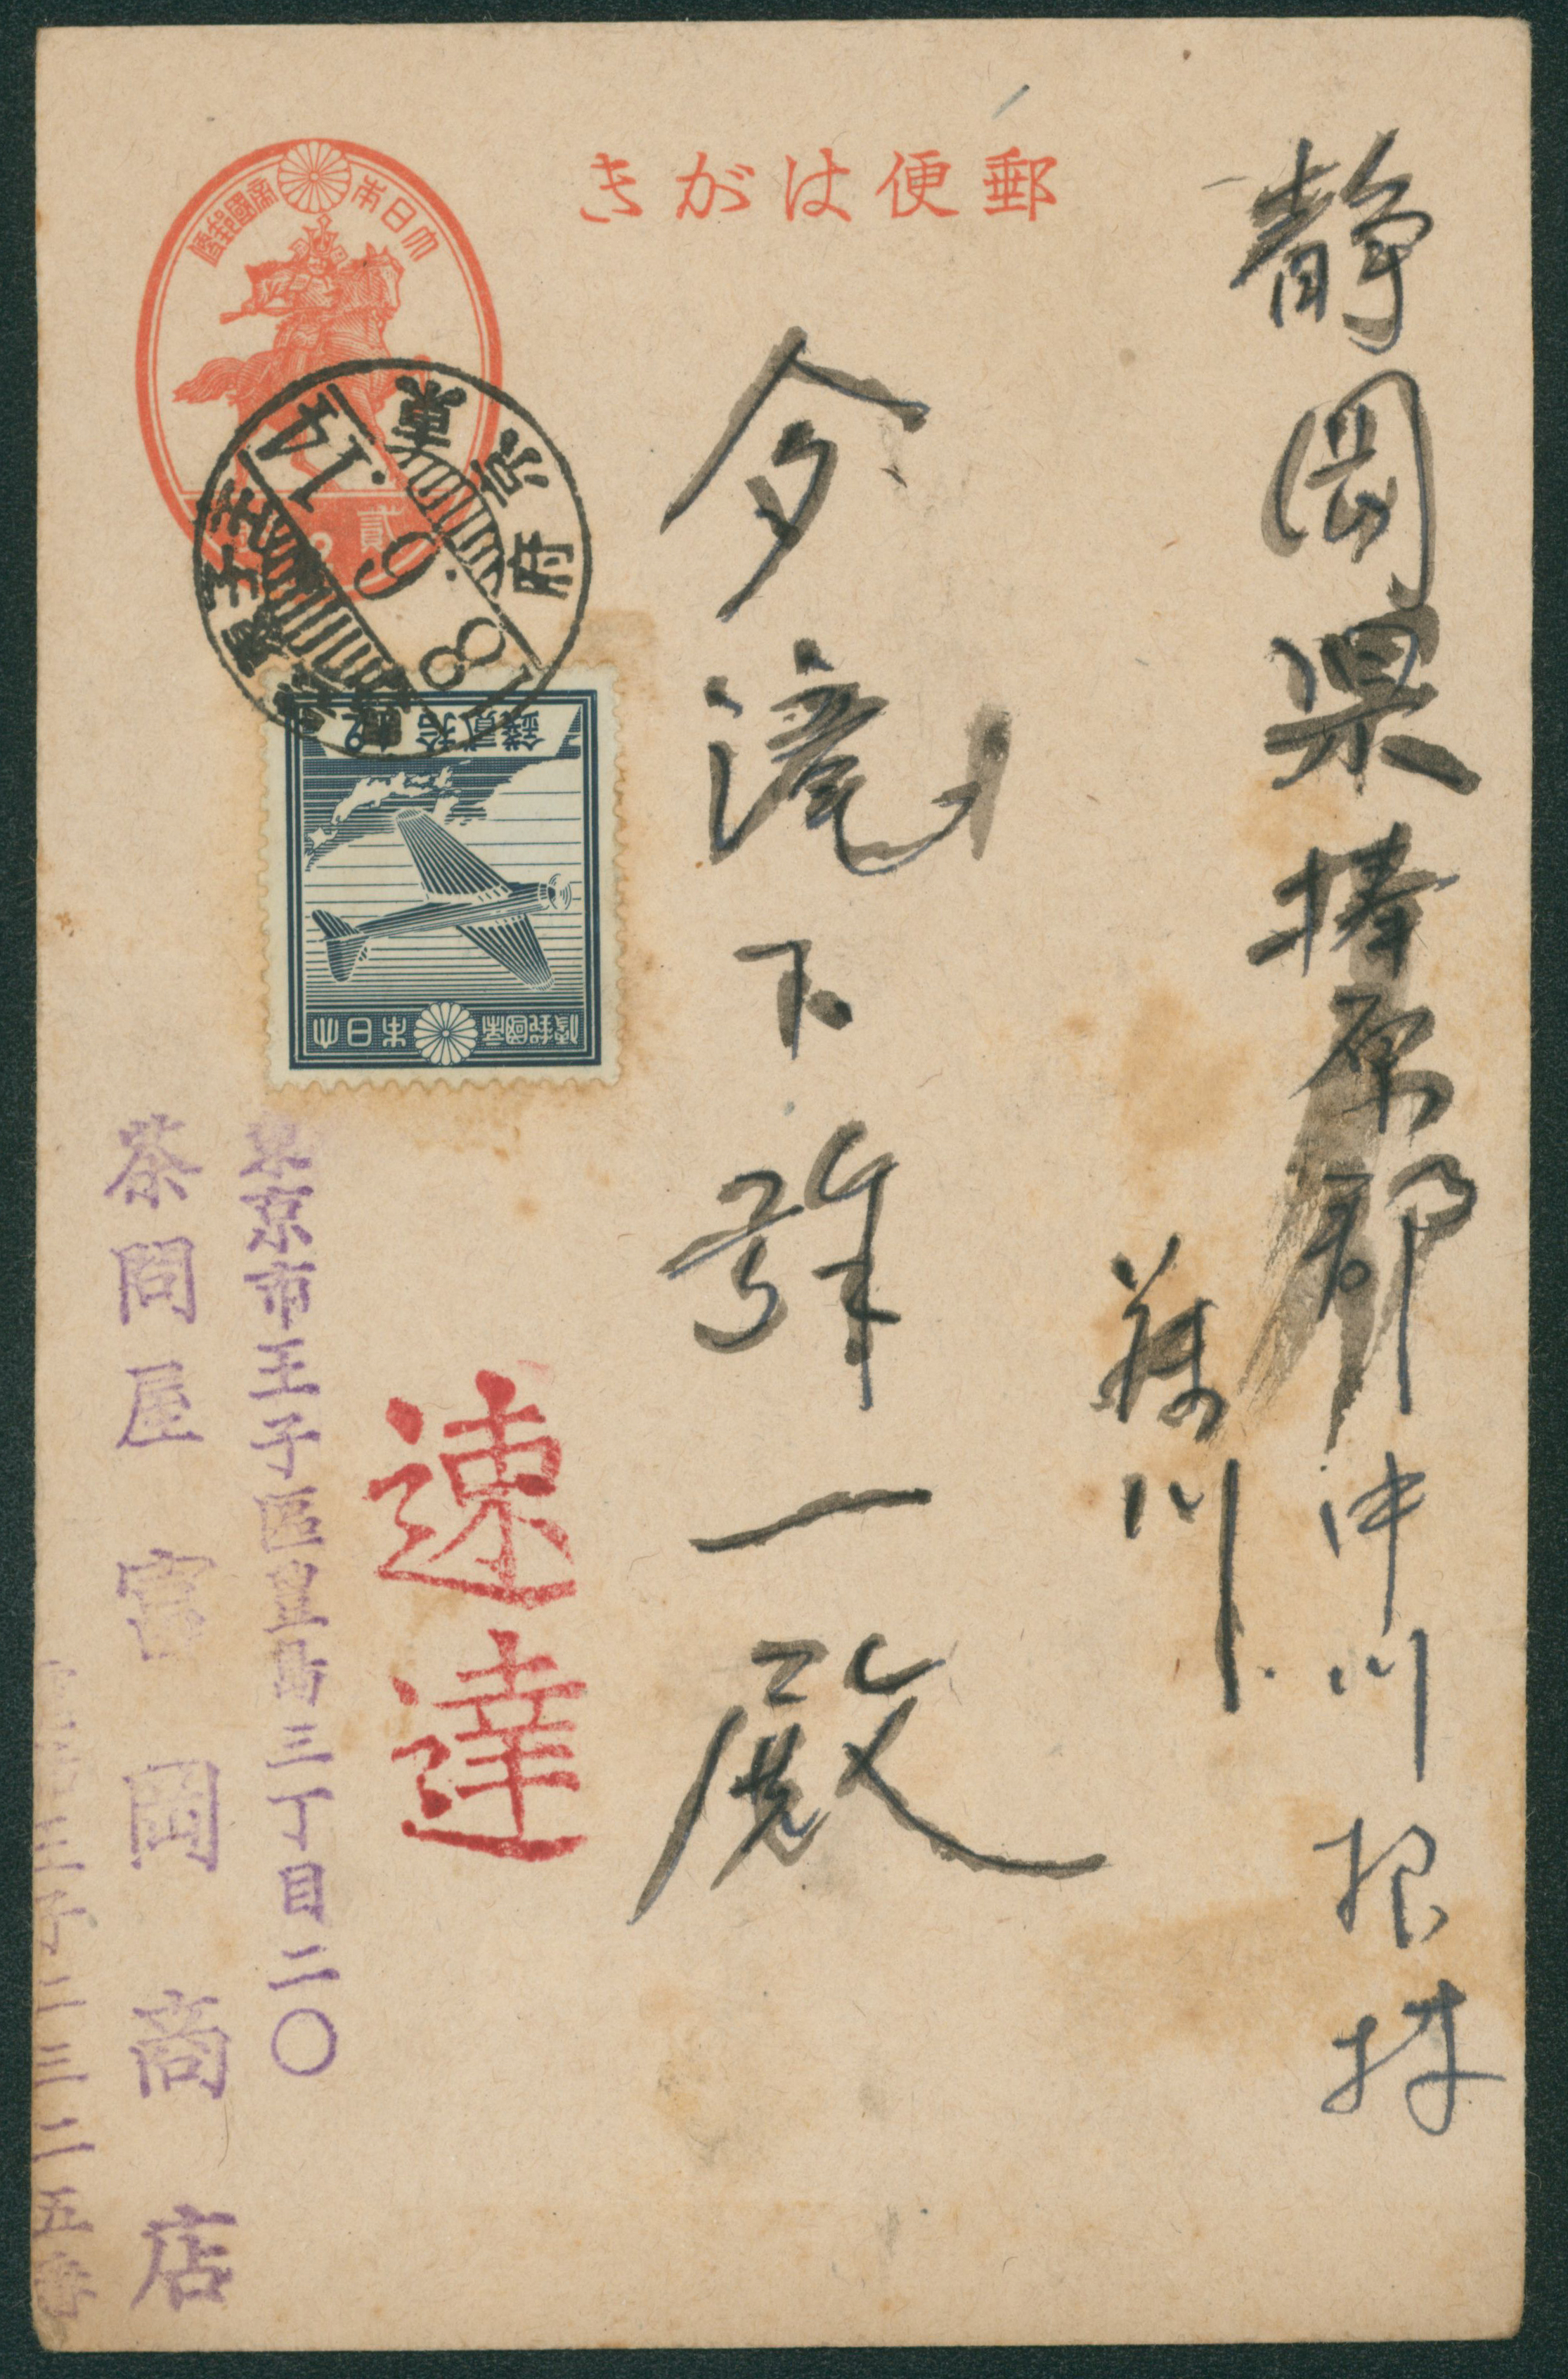 郵便はがき
静岡県榛原郡中川根村
藤川
今滝下辞一殿
大日本帝國郵便
貳
東京府
王子
14.6.8
拾貳錢
大日本帝國郵便
速達
東京市王子區豊島三丁目二〇
茶問屋 宮岡商店
王子二三二五番